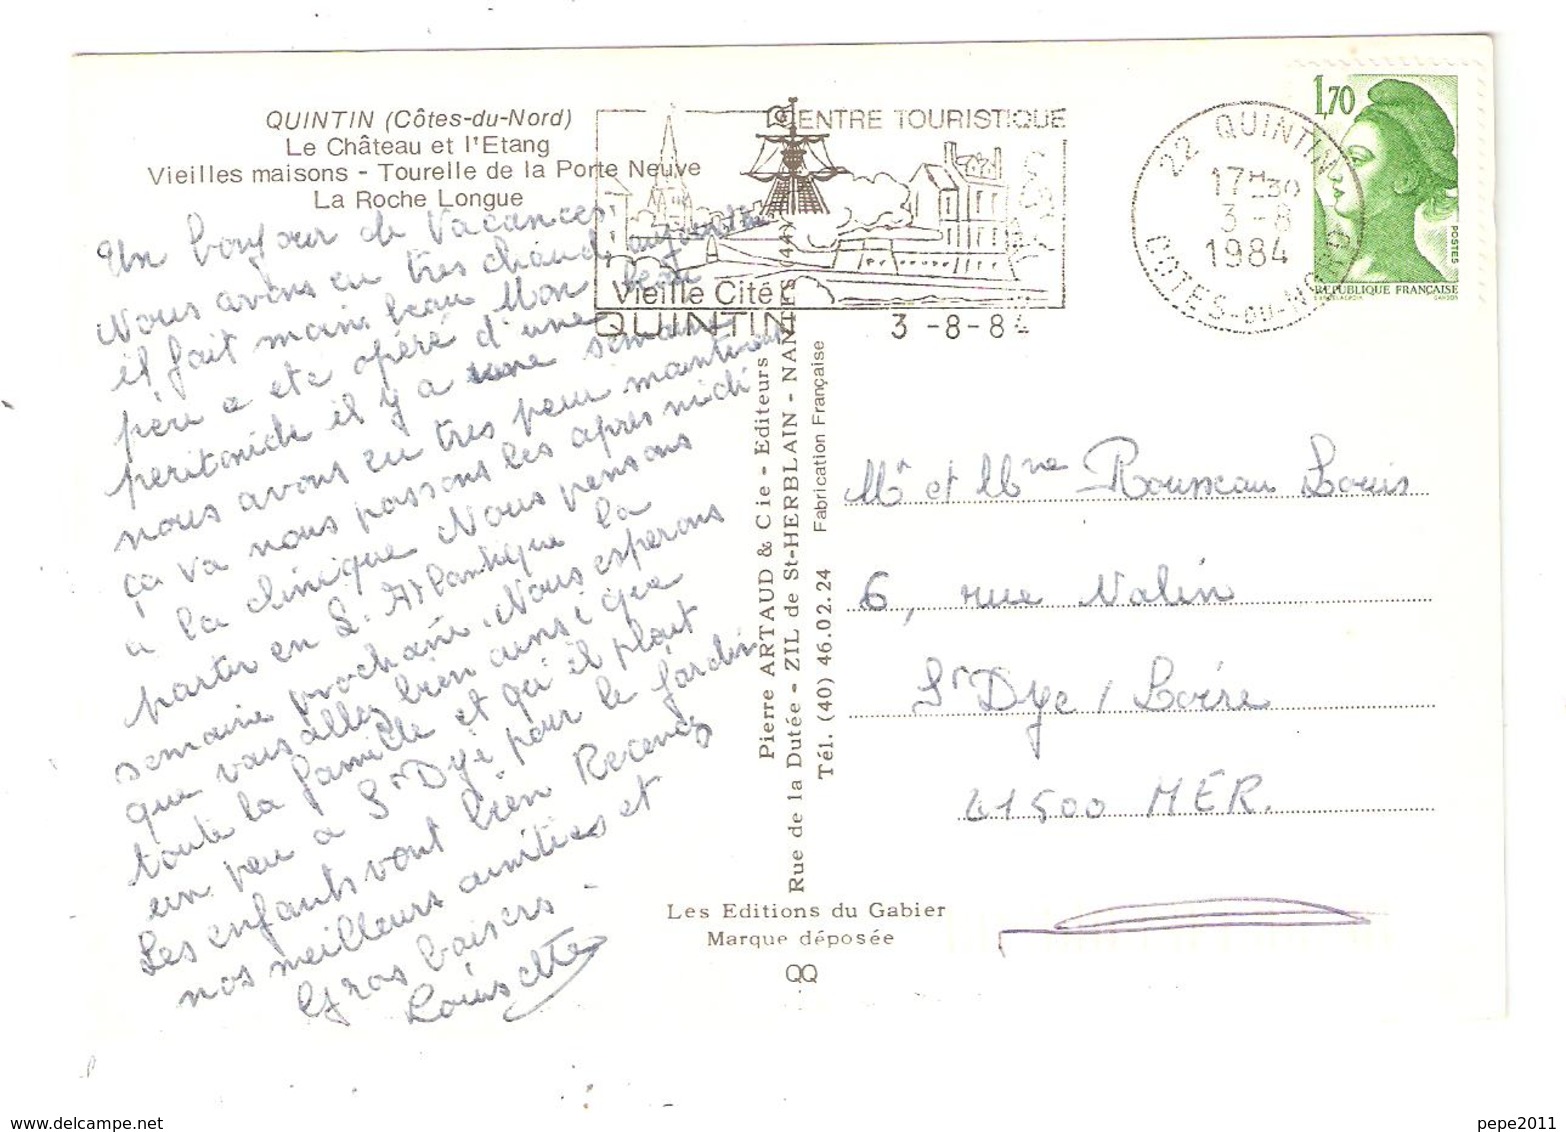 QUINTIN (Côtes-du-Nord)
Le Château et l'Etang
Vieilles maisons - Tourelle de la Porte Neuve
La Roche Longue
CENTRE TOURISTIQUE
Vieille Cité
QUINTIN
3-8-84
22 QUINTIN
17H30
3-8
1984
COTES-DU-NORD
1,70
POSTES
REPUBLIQUE FRANÇAISE
Un bonjour de vacances
Nous avons eu tres chaud, aujourd'hui
il fait moins beau Mon beau
père a ete opéré d'une
peritonide il y a une semaine
nous avons eu tres peur maintenant
ça va nous passons les apres midi
a la clinique Nous pensons
partir en L. Atlantique la
semaine prochaine. Nous esperons
que vous allez bien ainsi que
toute la famille et qu'il plait
un peu a St Dyé pour le jardin
Les enfants vont bien Recevez
nos meilleurs amitiés et
Gros baisers
Louisette
Pierre ARTAUD & Cie - Editeurs
Rue de la Dutée - ZIL de St-HERBLAIN - NANTES (44)
Tél. (40) 46.02.24 Fabrication Française
Mr et Mme Rousseau Louis
6, rue Nalin
St Dye / Loire
41500 MER.
Les Editions du Gabier
Marque déposée
QQ
pepe2011